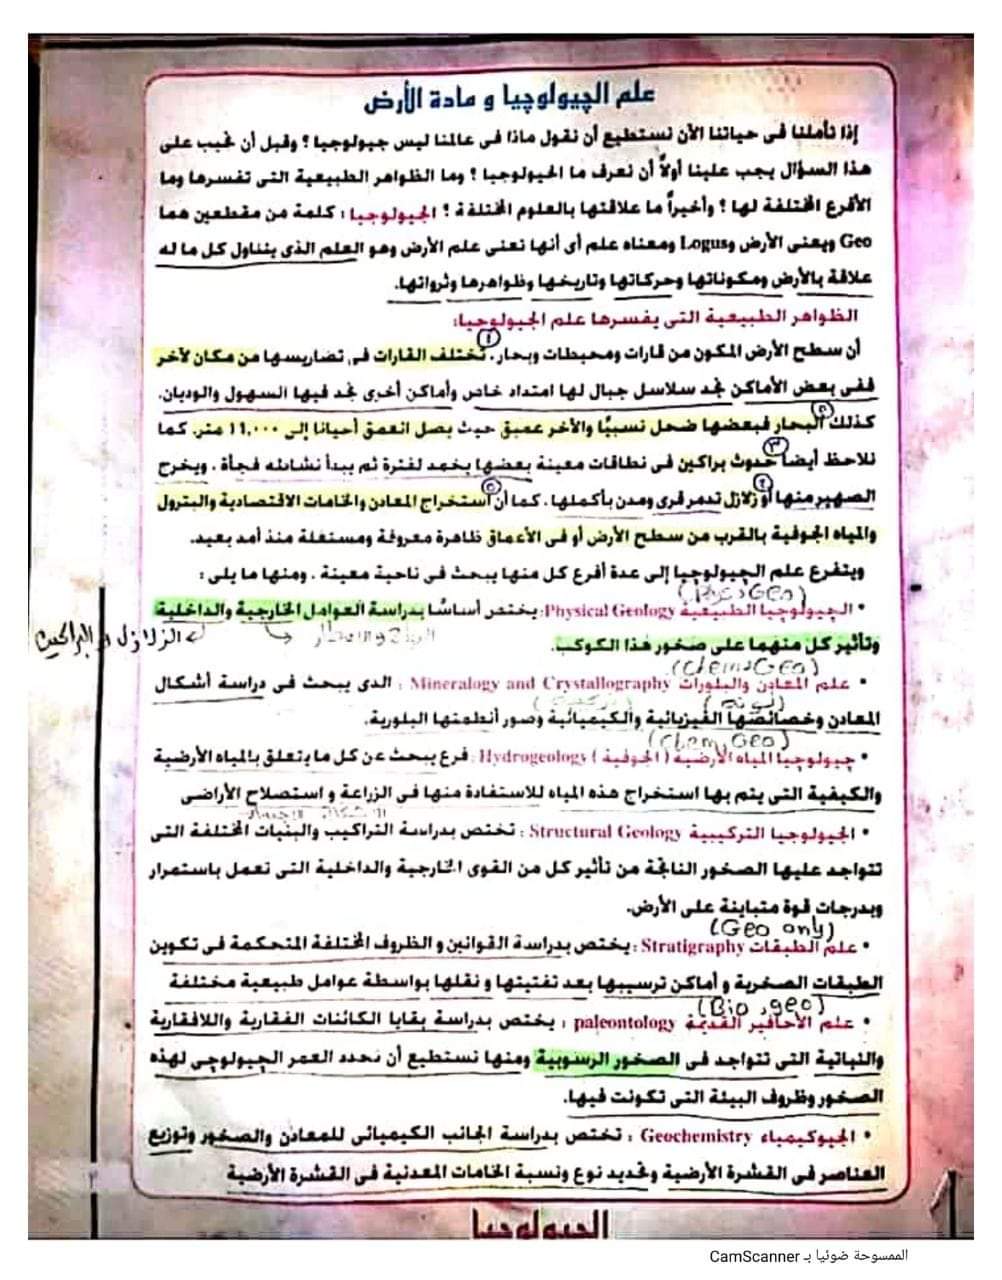 علم الچيولوچيا و مادة الأرض
إذا تأملنا فى حياتنا الآن نستطيع أن نقول ماذا فى عالمنا ليس جيولوجيا ؟ وقبل أن نجيب على
هذا السؤال يجب علينا أولاً أن نعرف ما الجيولوجيا ؟ وما الظواهر الطبيعية التى تفسرها وما
الأفرع المختلفة لها ؟ وأخيراً ما علاقتها بالعلوم المختلفة ؟ الجيولوجيا : كلمة من مقطعين هما
Geo ويعنى الأرض وLogus ومعناه علم أى أنها تعنى علم الأرض وهو العلم الذى يتناول كل ما له
علاقة بالأرض ومكوناتها وحركاتها وتاريخها وظواهرها وثرواتها.
الظواهر الطبيعية التى يفسرها علم الجيولوجيا:
أن سطح الأرض المكون من قارات ومحيطات وبحار. تختلف القارات فى تضاريسها من مكان لآخر
ففى بعض الأماكن نجد سلاسل جبال لها امتداد خاص وأماكن أخرى نجد فيها السهول والوديان.
كذلك البحار فبعضها ضحل نسبيًا والآخر عميق حيث يصل العمق أحيانا إلى ١١,٠٠٠ متر. كما
نلاحظ أيضاً حدوث براكين فى نطاقات معينة بعضها يخمد لفترة ثم يبدأ نشاطه فجأة . ويخرج
الصهير منها أو زلازل تدمر قرى ومدن بأكملها. كما أن استخراج المعادن والخامات الاقتصادية والبترول
والمياه الجوفية بالقرب من سطح الأرض أو فى الأعماق ظاهرة معروفة ومستغلة منذ أمد بعيد.
ويتفرع علم الچيولوچيا إلى عدة أفرع كل منها يبحث فى ناحية معينة . ومنها ما يلى :
(Phys,Geo)
• الچيولوچيا الطبيعية Physical Geology: يختص أساسًا بدراسة العوامل الخارجية والداخلية
الزلازل و البراكين
وتأثير كل منهما على صخور هذا الكوكب.
(chem,Geo)
• علم المعادن والبلورات Mineralogy and Crystallography : الذى يبحث فى دراسة أشكال
المعادن وخصائصها الفيزيائية والكيميائية وصور أنظمتها البلورية.
(chem,Geo)
• چيولوچيا المياه الأرضية ( الجوفية ) Hydrogeology : فرع يبحث عن كل ما يتعلق بالمياه الأرضية
والكيفية التى يتم بها استخراج هذه المياه للاستفادة منها فى الزراعة و استصلاح الأراضى
• الجيولوجيا التركيبية Structural Geology : تختص بدراسة التراكيب والبنيات المختلفة التى
تتواجد عليها الصخور الناتجة من تأثير كل من القوى الخارجية والداخلية التى تعمل باستمرار
وبدرجات قوة متباينة على الأرض.
(Geo only)
• علم الطبقات Stratigraphy : يختص بدراسة القوانين و الظروف المختلفة المتحكمة فى تكوين
الطبقات الصخرية و أماكن ترسيبها بعد تفتيتها و نقلها بواسطة عوامل طبيعية مختلفة
(Bio,geo)
• علم الأحافير القديمة paleontology : يختص بدراسة بقايا الكائنات الفقارية واللافقارية
والنباتية التى تتواجد فى الصخور الرسوبية ومنها نستطيع أن نحدد العمر الچيولوچى لهذه
الصخور وظروف البيئة التى تكونت فيها.
• الجيوكيمياء Geochemistry : تختص بدراسة الجانب الكيميائى للمعادن والصخور وتوزيع
العناصر فى القشرة الأرضية وتحديد نوع ونسبة الخامات المعدنية فى القشرة الأرضية
الجيولوجيا
الممسوحة ضوئيا بـ CamScanner